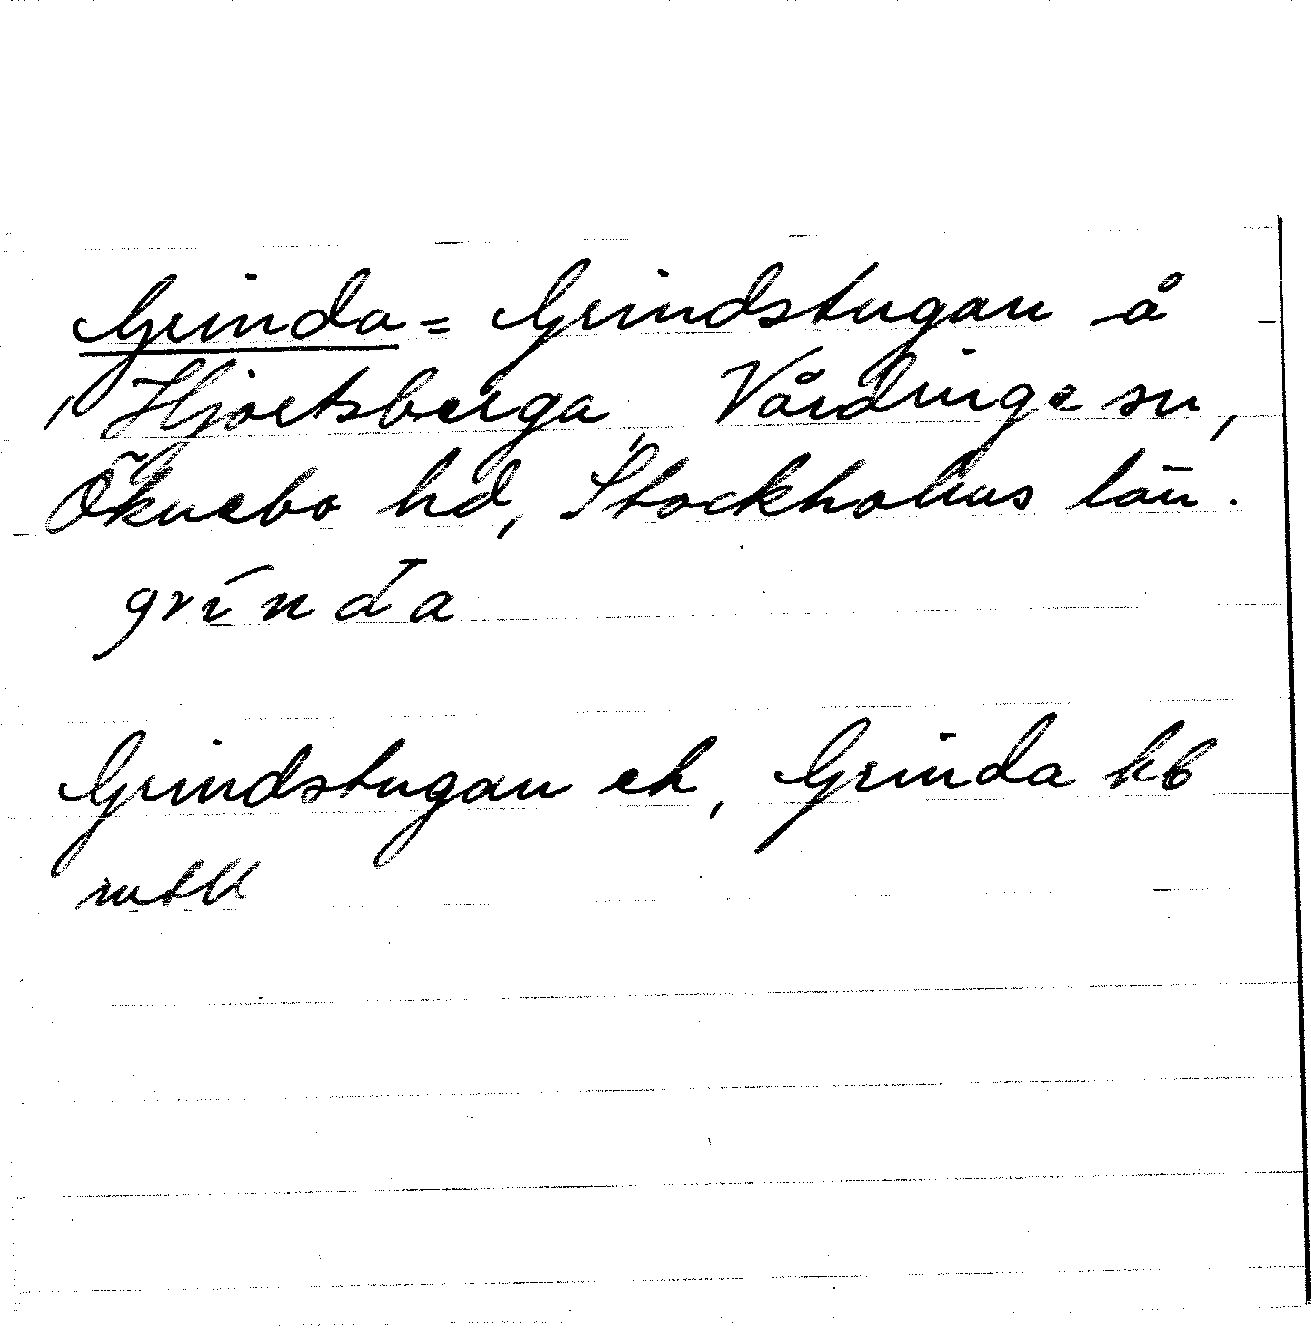 Grinda = Grindstugan å
Hjortsberga, Vårdinge sn,
Öknebo hd, Stockholms län.
grı́nda
Grindstugan ek, Grinda kb